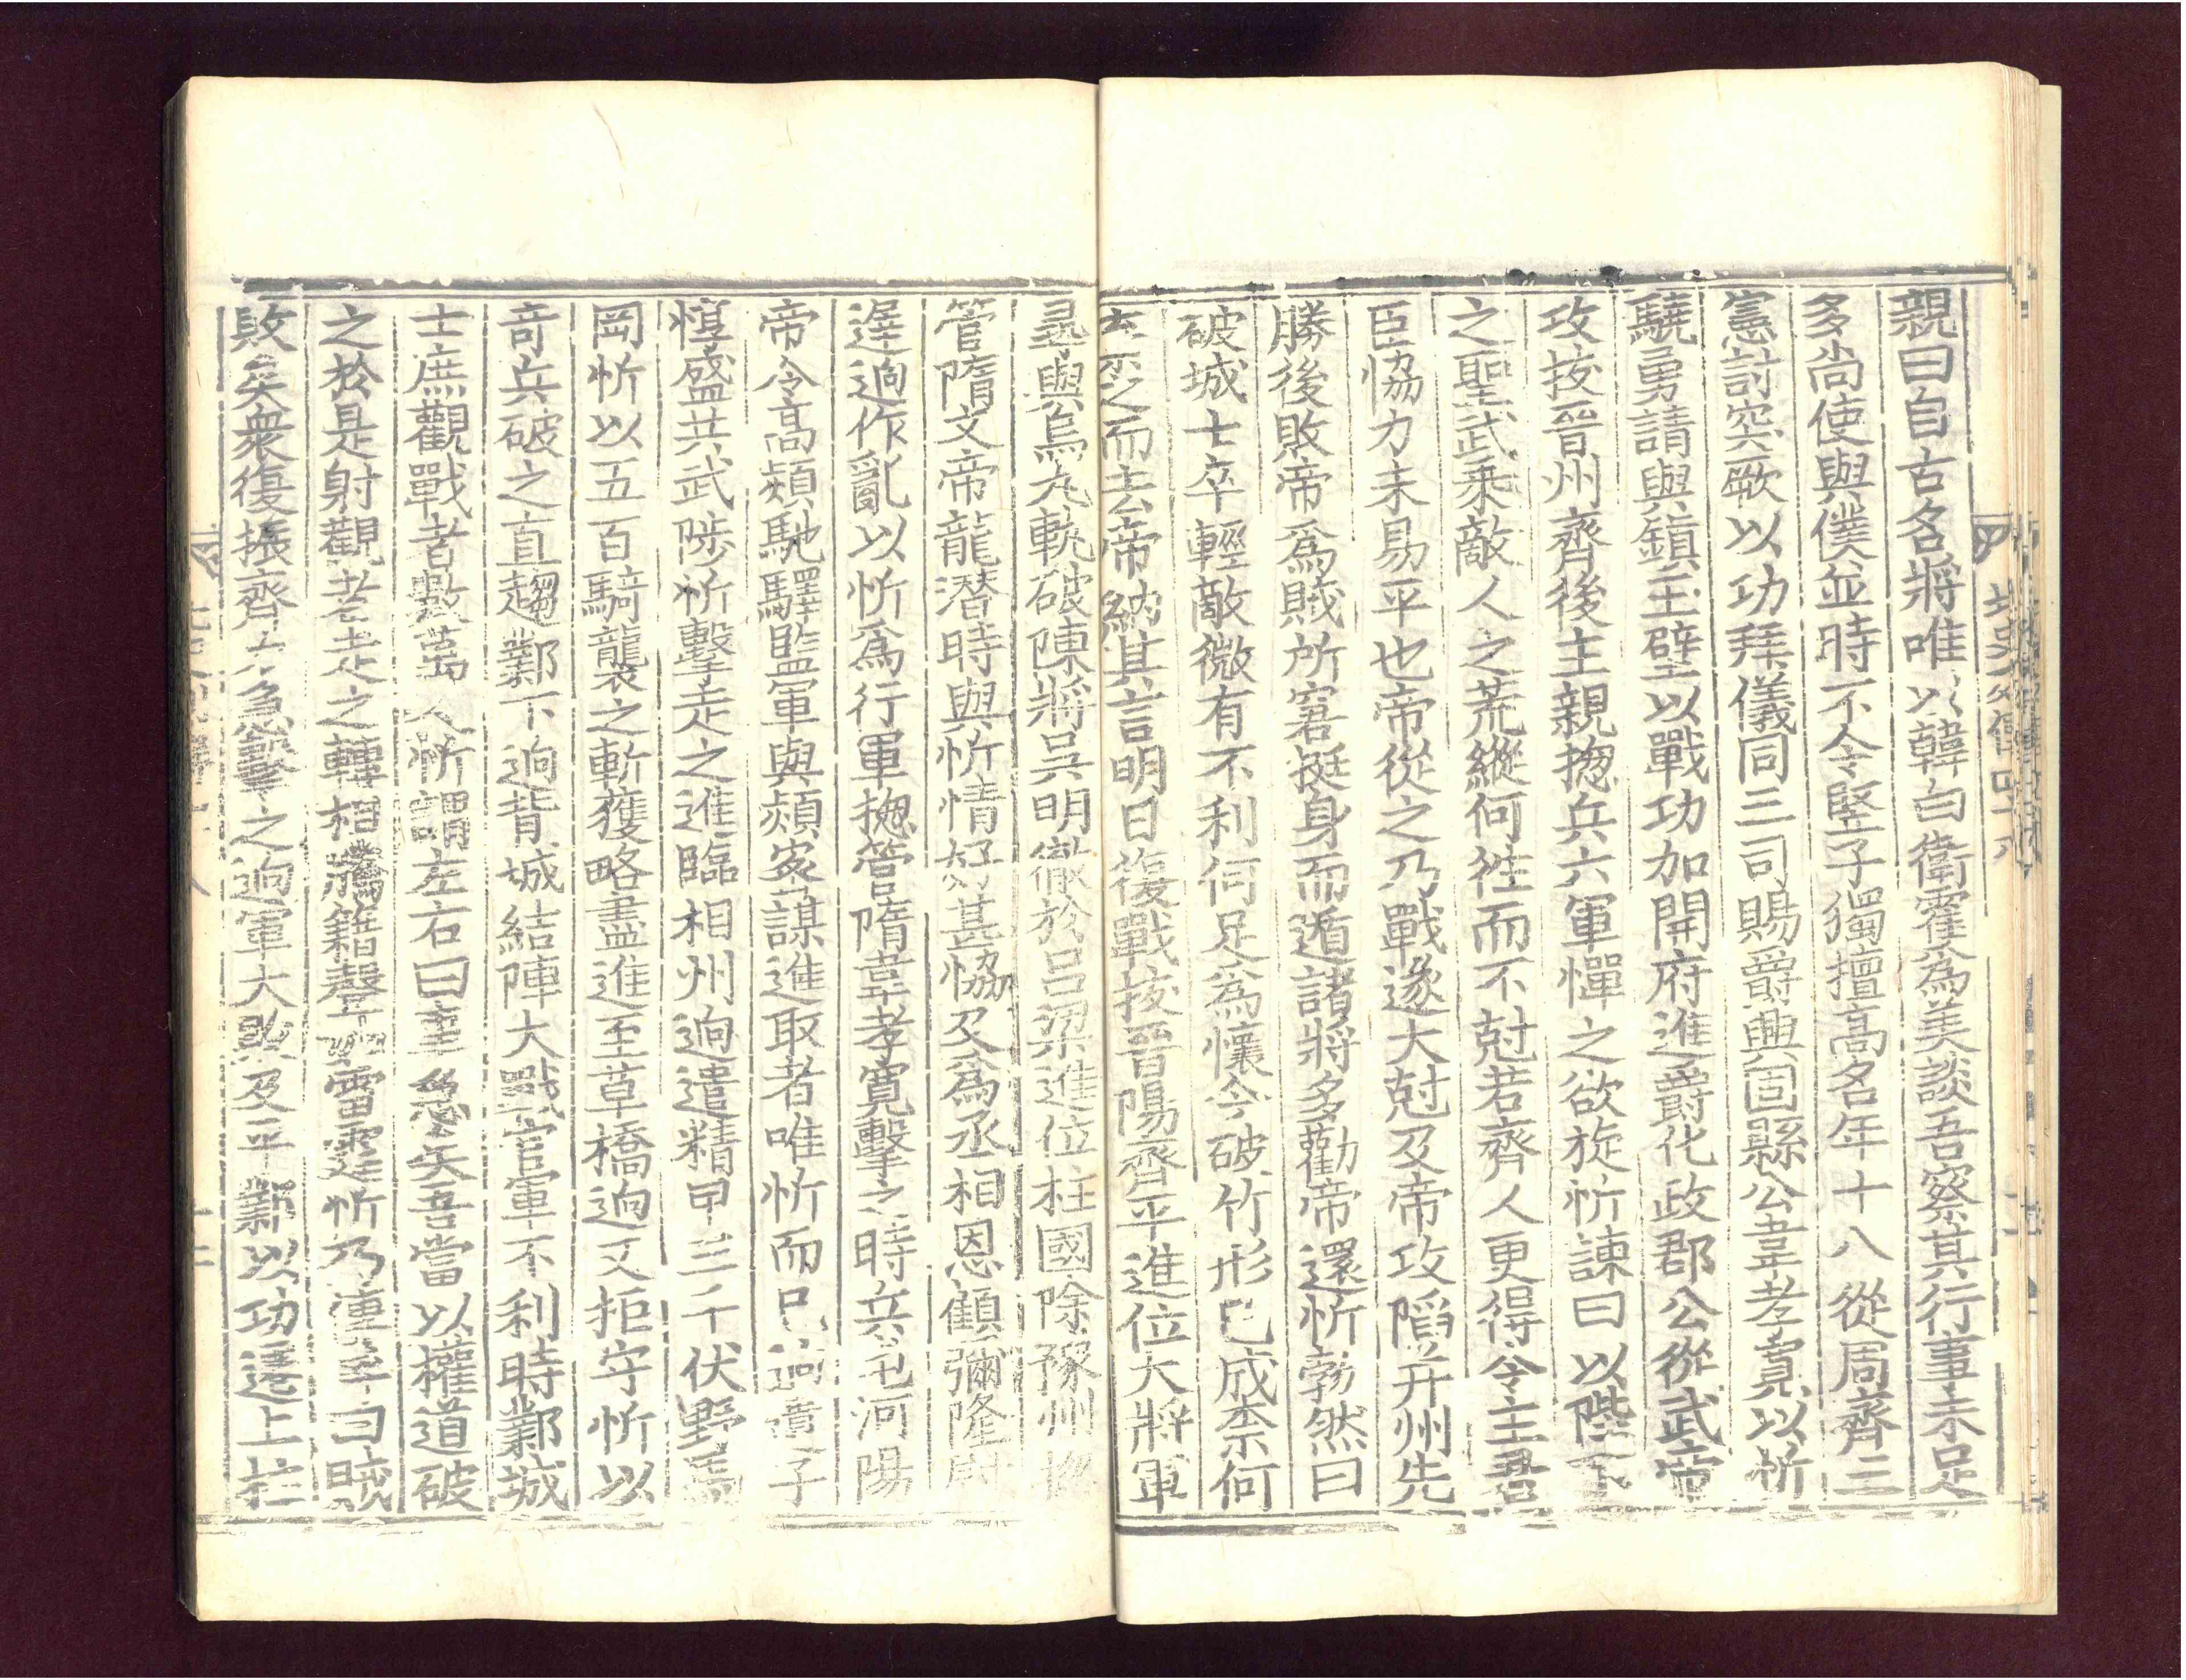 親曰自古名將唯以韓白衛霍爲美談吾察其行事未足
多尚使與僕並時不令竪子獨擅高名年十八從周齊王
憲討突厥以功拜儀同三司賜爵興固縣公韋孝寬以忻
驍勇請與鎮玉壁以戰功加開府進爵化政郡公從武帝
攻拔晉州齊後主親揔兵六軍憚之欲旋忻諫曰以陛下
之聖武乗敵人之荒縱何徃而不尅若齊人更得令主君
臣恊力未易平也帝從之乃戰遂大尅及帝攻陷并州先
勝後敗帝爲賊所窘挺身而遁諸將多勸帝還忻勃然曰
破城士卒輕敵微有不利何足爲懷今破竹形已成柰何
去之而去帝納其言明日復戰拔晉陽齊平進位大將軍
尋與烏丸軌破陳將吳明徹於呂梁進位柱國除豫州揔
管隋文帝龍潛時與忻情好甚恊及爲丞相恩顧彌隆尉
遟逈作亂以忻爲行軍揔管隋韋孝寬擊之時兵屯河陽
帝令高熲馳驛監軍與熲宻謀進取者唯忻而已逈遣子
惇盛共武陟忻擊走之進臨相州逈遣精甲三千伏野馬
岡忻以五百騎襲之斬獲略盡進至草橋逈又拒守忻以
竒兵破之直趨鄴下逈背城結陣大戰官軍不利時鄴城
士庶觀戰者數萬人忻謂左右曰事急矣吾當以權道破
之於是射觀者走之轉相騰籍聲如雷霆忻乃傳呼曰賊
敗矣衆復振齊力急擊之逈軍大敗及平鄴以功遷上柱